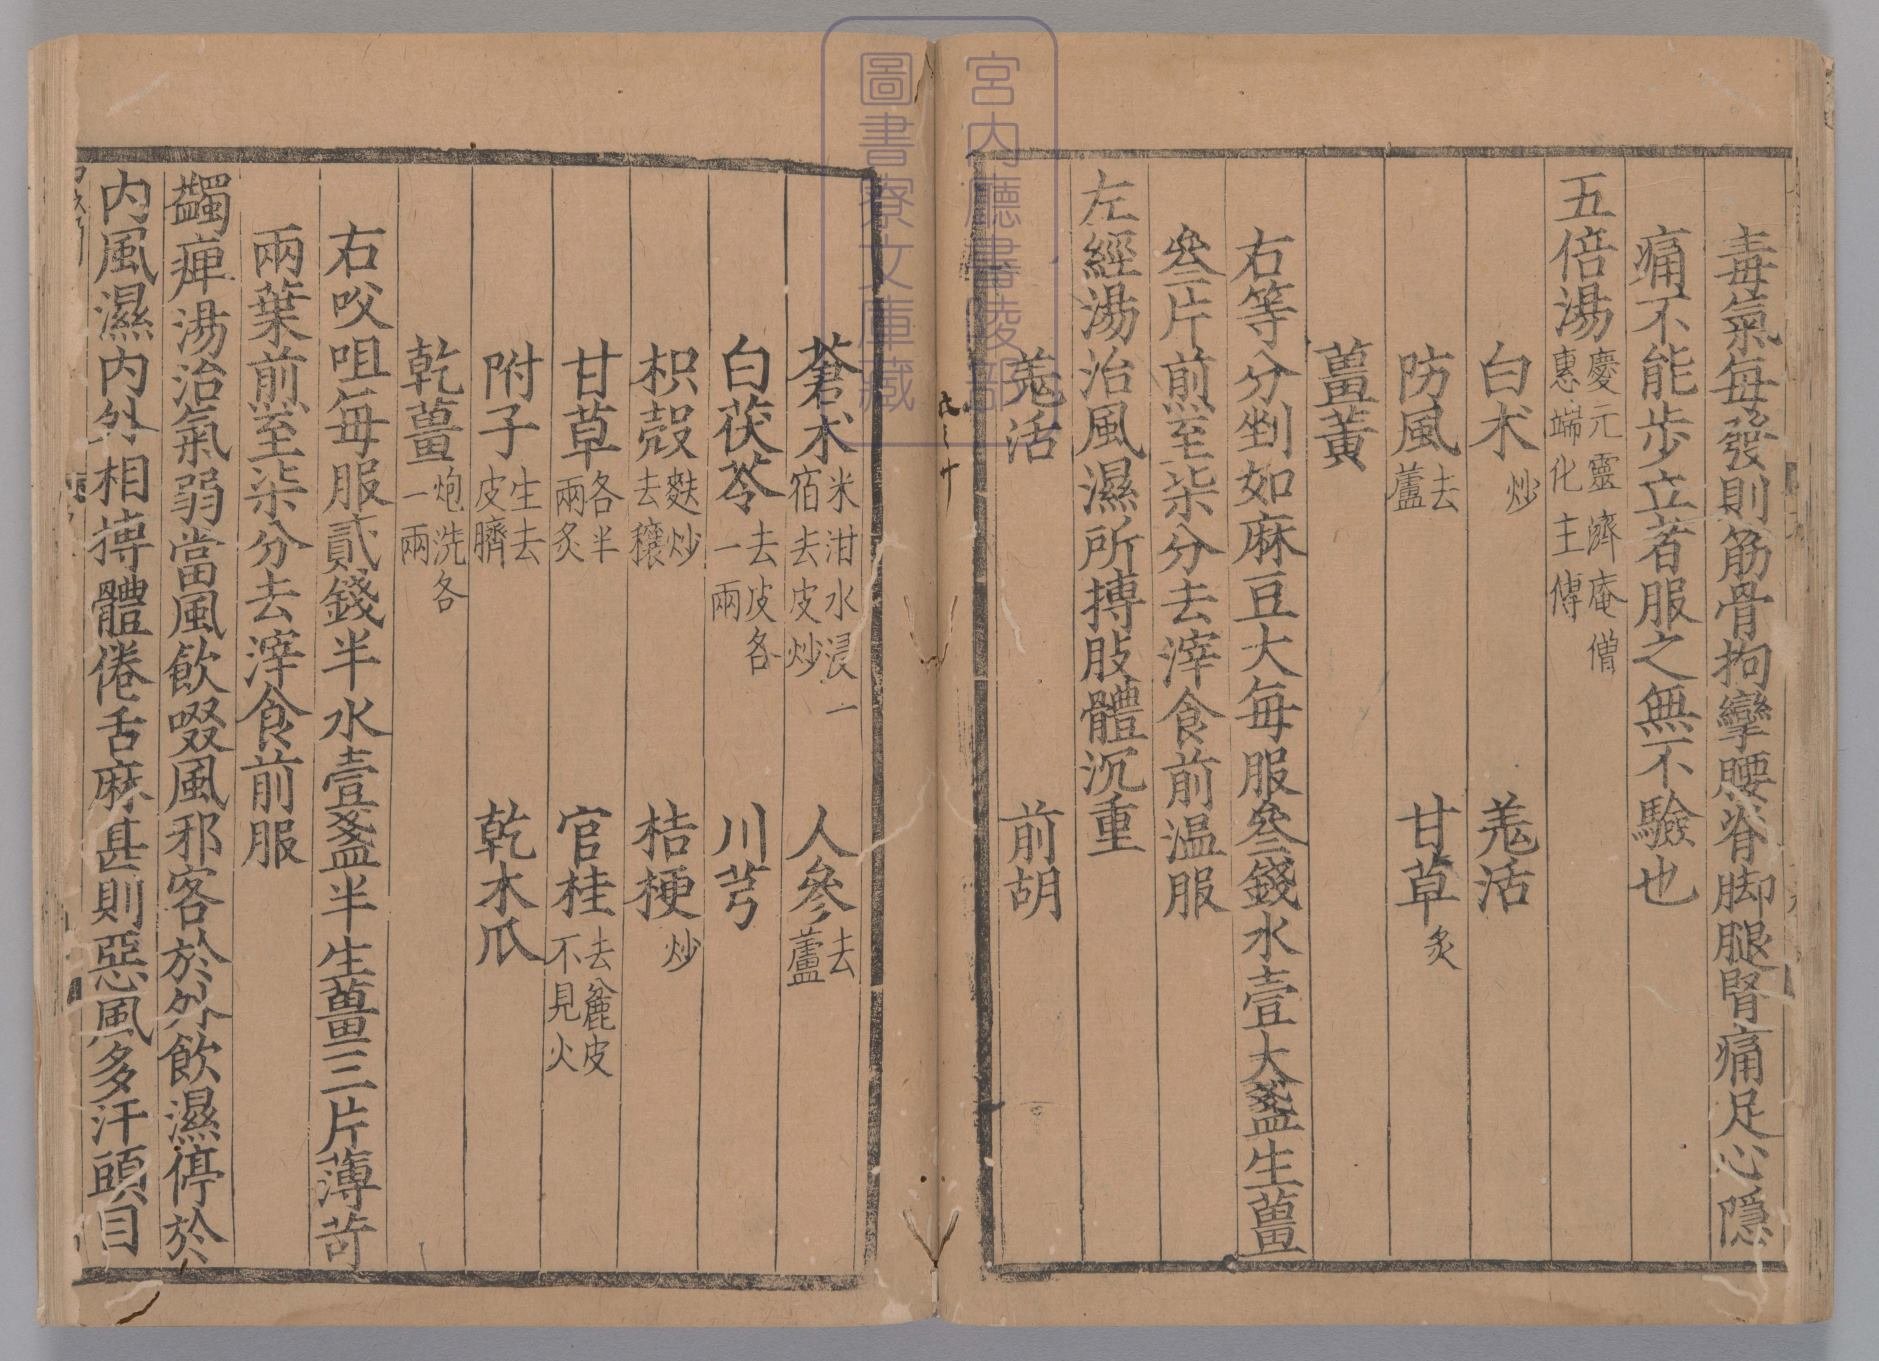 毒氣毎發則筋骨拘攣腰脊脚腿腎痛足心隱
痛不能步立若服之無不驗也
五倍湯慶元靈濟庵僧惠端化主傳
白术炒 羗活
防風去蘆 甘草炙
薑黃
右等分剉如麻豆大每服叄錢水壹大盞生薑
叄片煎至柒分去滓食前温服
左經湯治風濕所搏肢體沉重
羗活 前胡
蒼术米泔水浸一宿去皮炒 人參去蘆
白茯苓去皮各一兩 川芎
枳殼麩炒去穰 桔梗炒
甘草各半兩炙 官桂去麄皮不見火
附子生去皮臍 乾木瓜
乾薑炮洗各一兩
右㕮咀每服貳錢半水壹盞半生薑三片薄苛
兩葉煎至柒分去滓食前服
蠲痺湯治氣弱當風飲啜風邪客於外飲濕停於
内風濕内外相搏體倦舌麻甚則惡風多汗頭目
宮内廳書陵部
圖書寮文庫藏